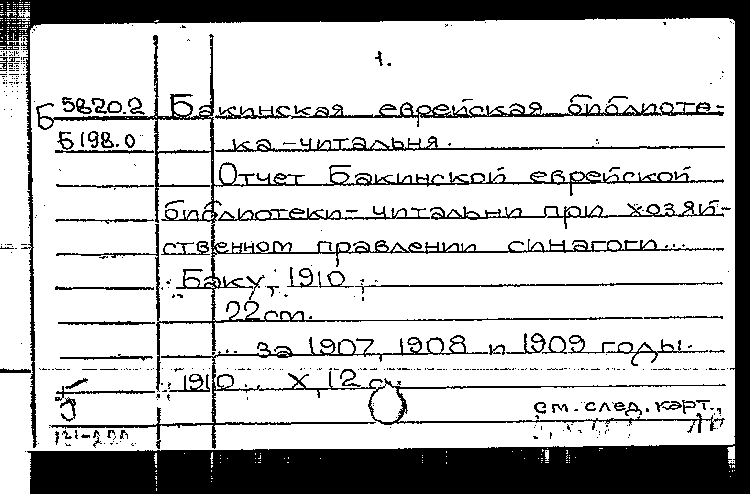 1.
Б 5820.2 Бакинская еврейская библиоте-
Б198.0 ка-читальня.
Отчет Бакинской еврейской
библиотеки-читальни при хозяй-
ственном правлении синагоги...
Баку, 1910
22cm.
... за 1907, 1908 и 1909 годы.
1910.. X, 12 с.
см. след. карт.